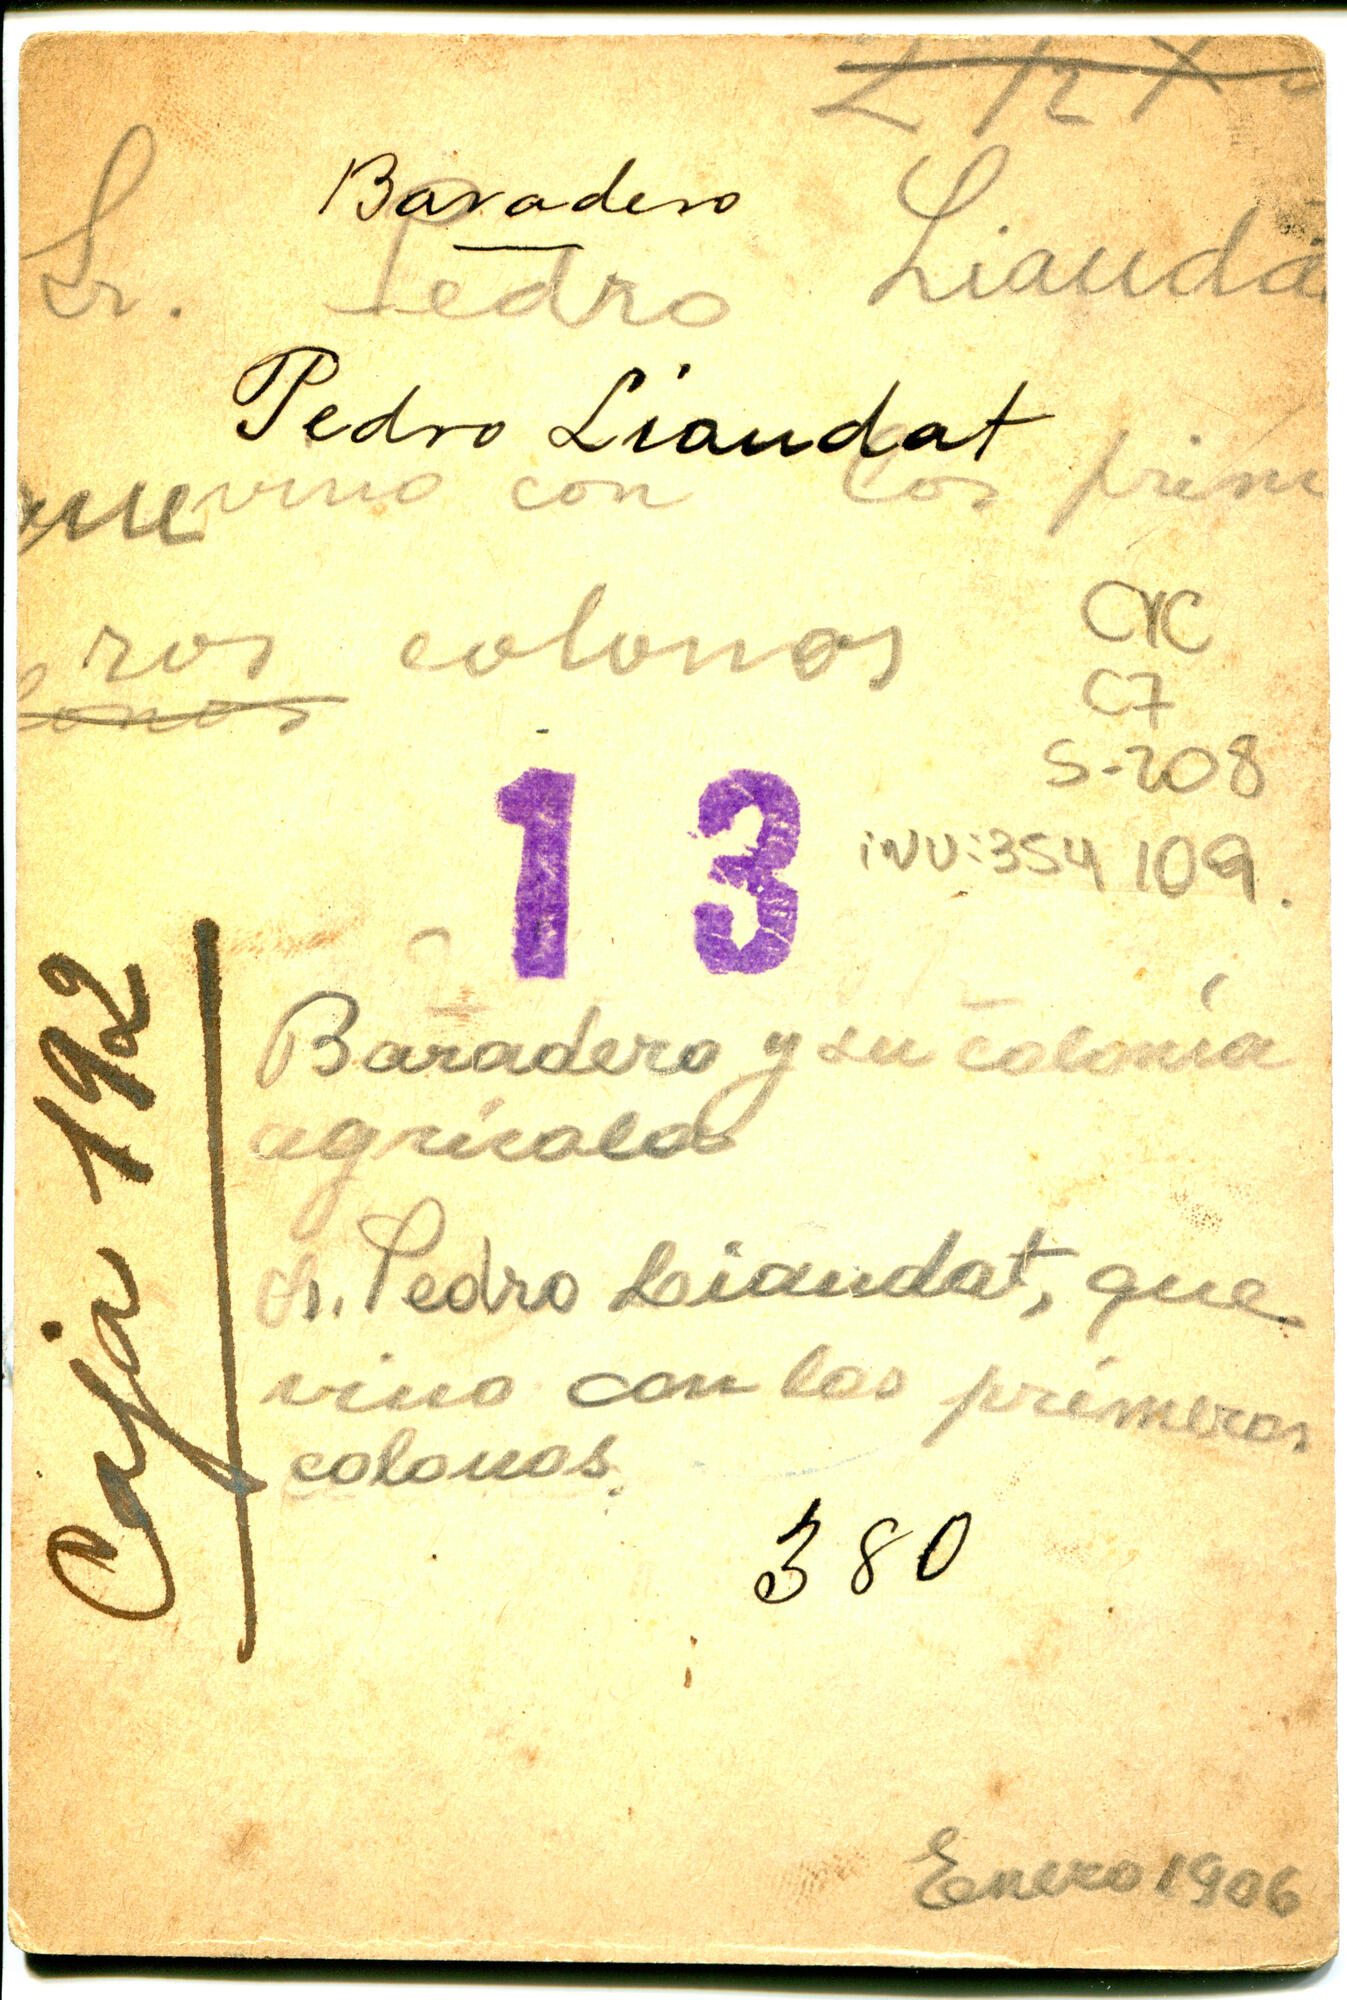 Baradero
Sr. Pedro Liauda
Pedro Liandat
que vino con los prim
ros colonos
lonos
CYC
C7
S-208
iNV:354 109.
13
Caja 192
Baradero y su colonía
agrícola
Sr. Pedro Liaudat, que
vino con los primeros
colonos.
380
Enero 1906